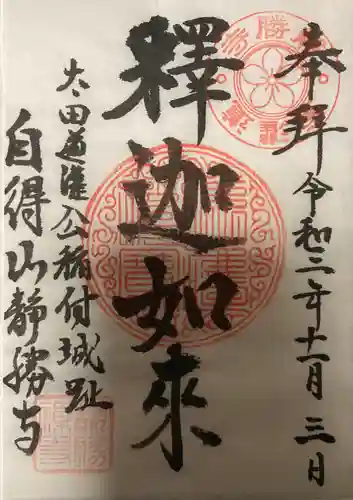 奉拝
令和三年十一月三日
釋迦如來
太田道灌公稲付城趾
自得山静勝寺